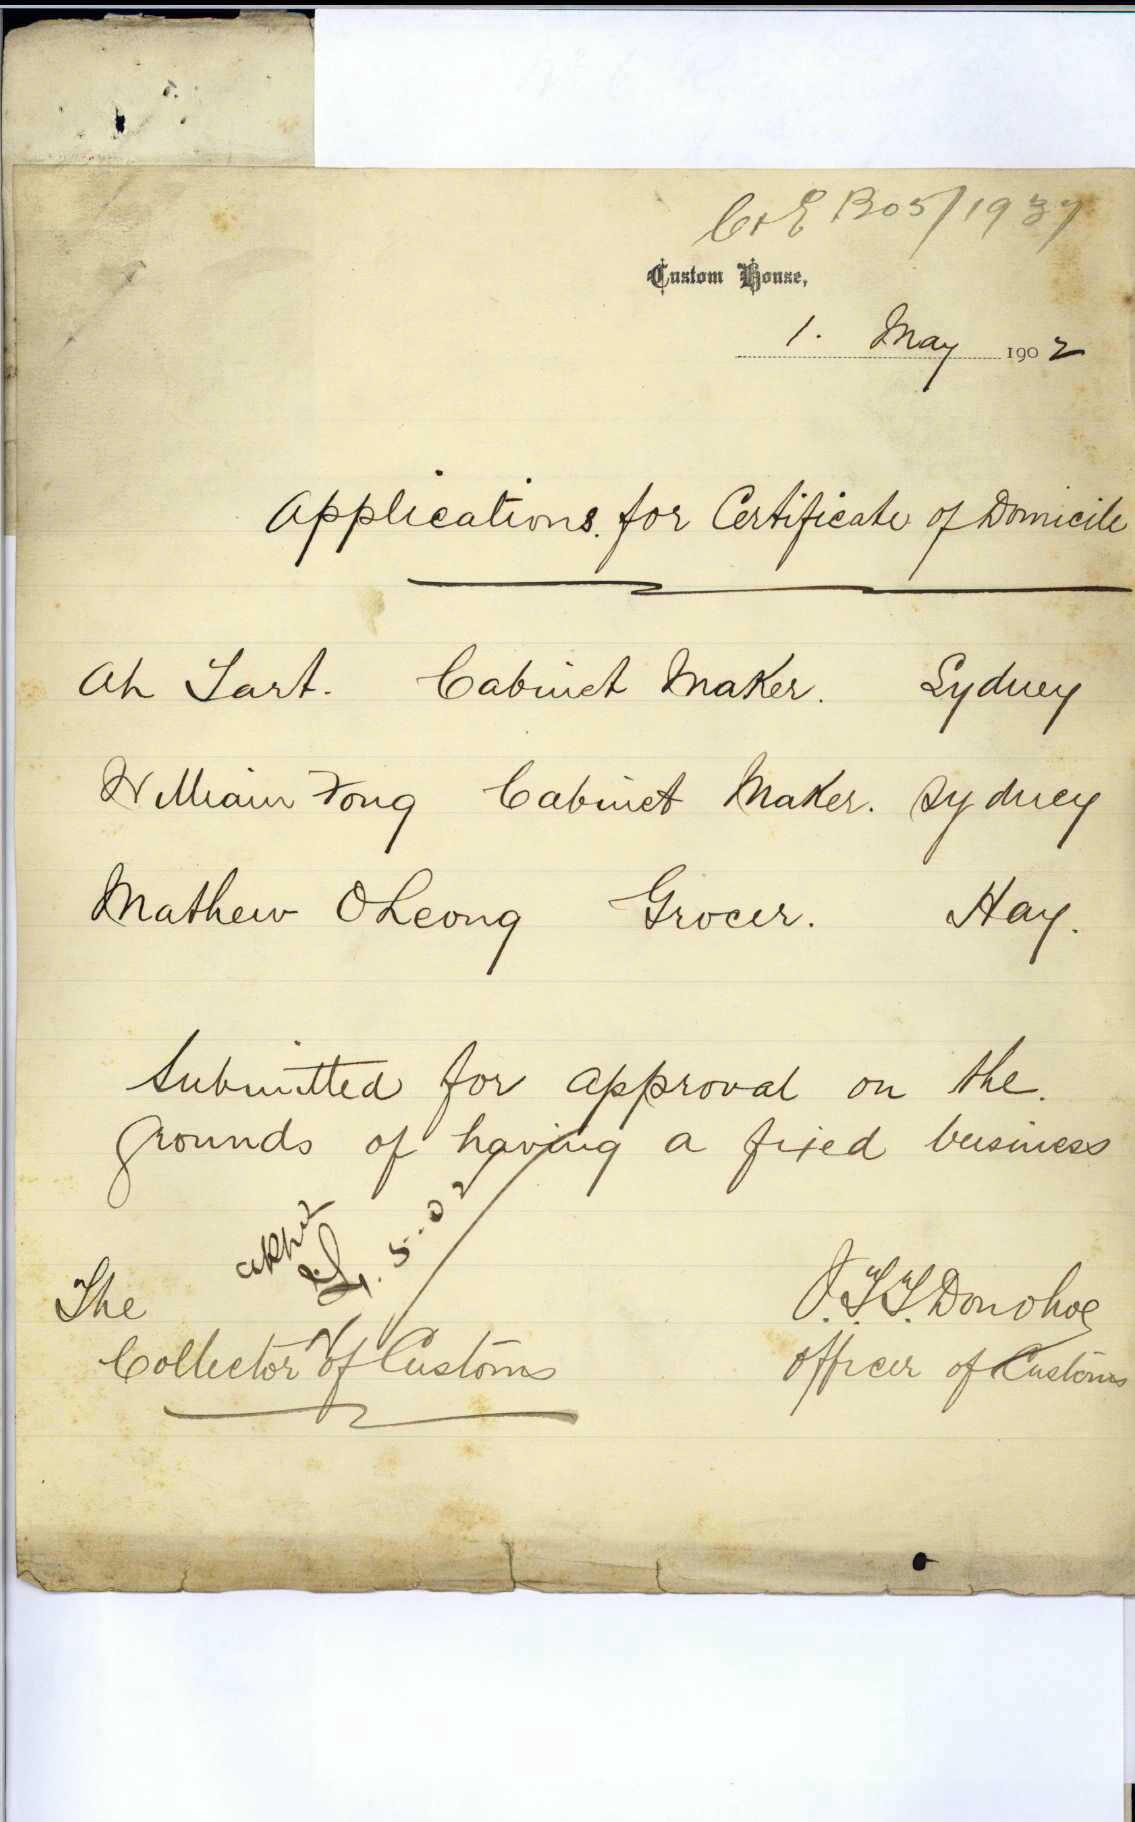 C & E B05/1937
Custom House,
1. May 1902
Applications for Certificate of Domicile
Ah Tart. Cabinet Maker. Sydney
William Fong Cabinet Maker. Sydney
Mathew O Leong Grocer. Hay.
Submitted for approval on the
grounds of having a fixed business
5.02
The
Collector of Customs
J.T.T. Donohoe
Officer of Customs